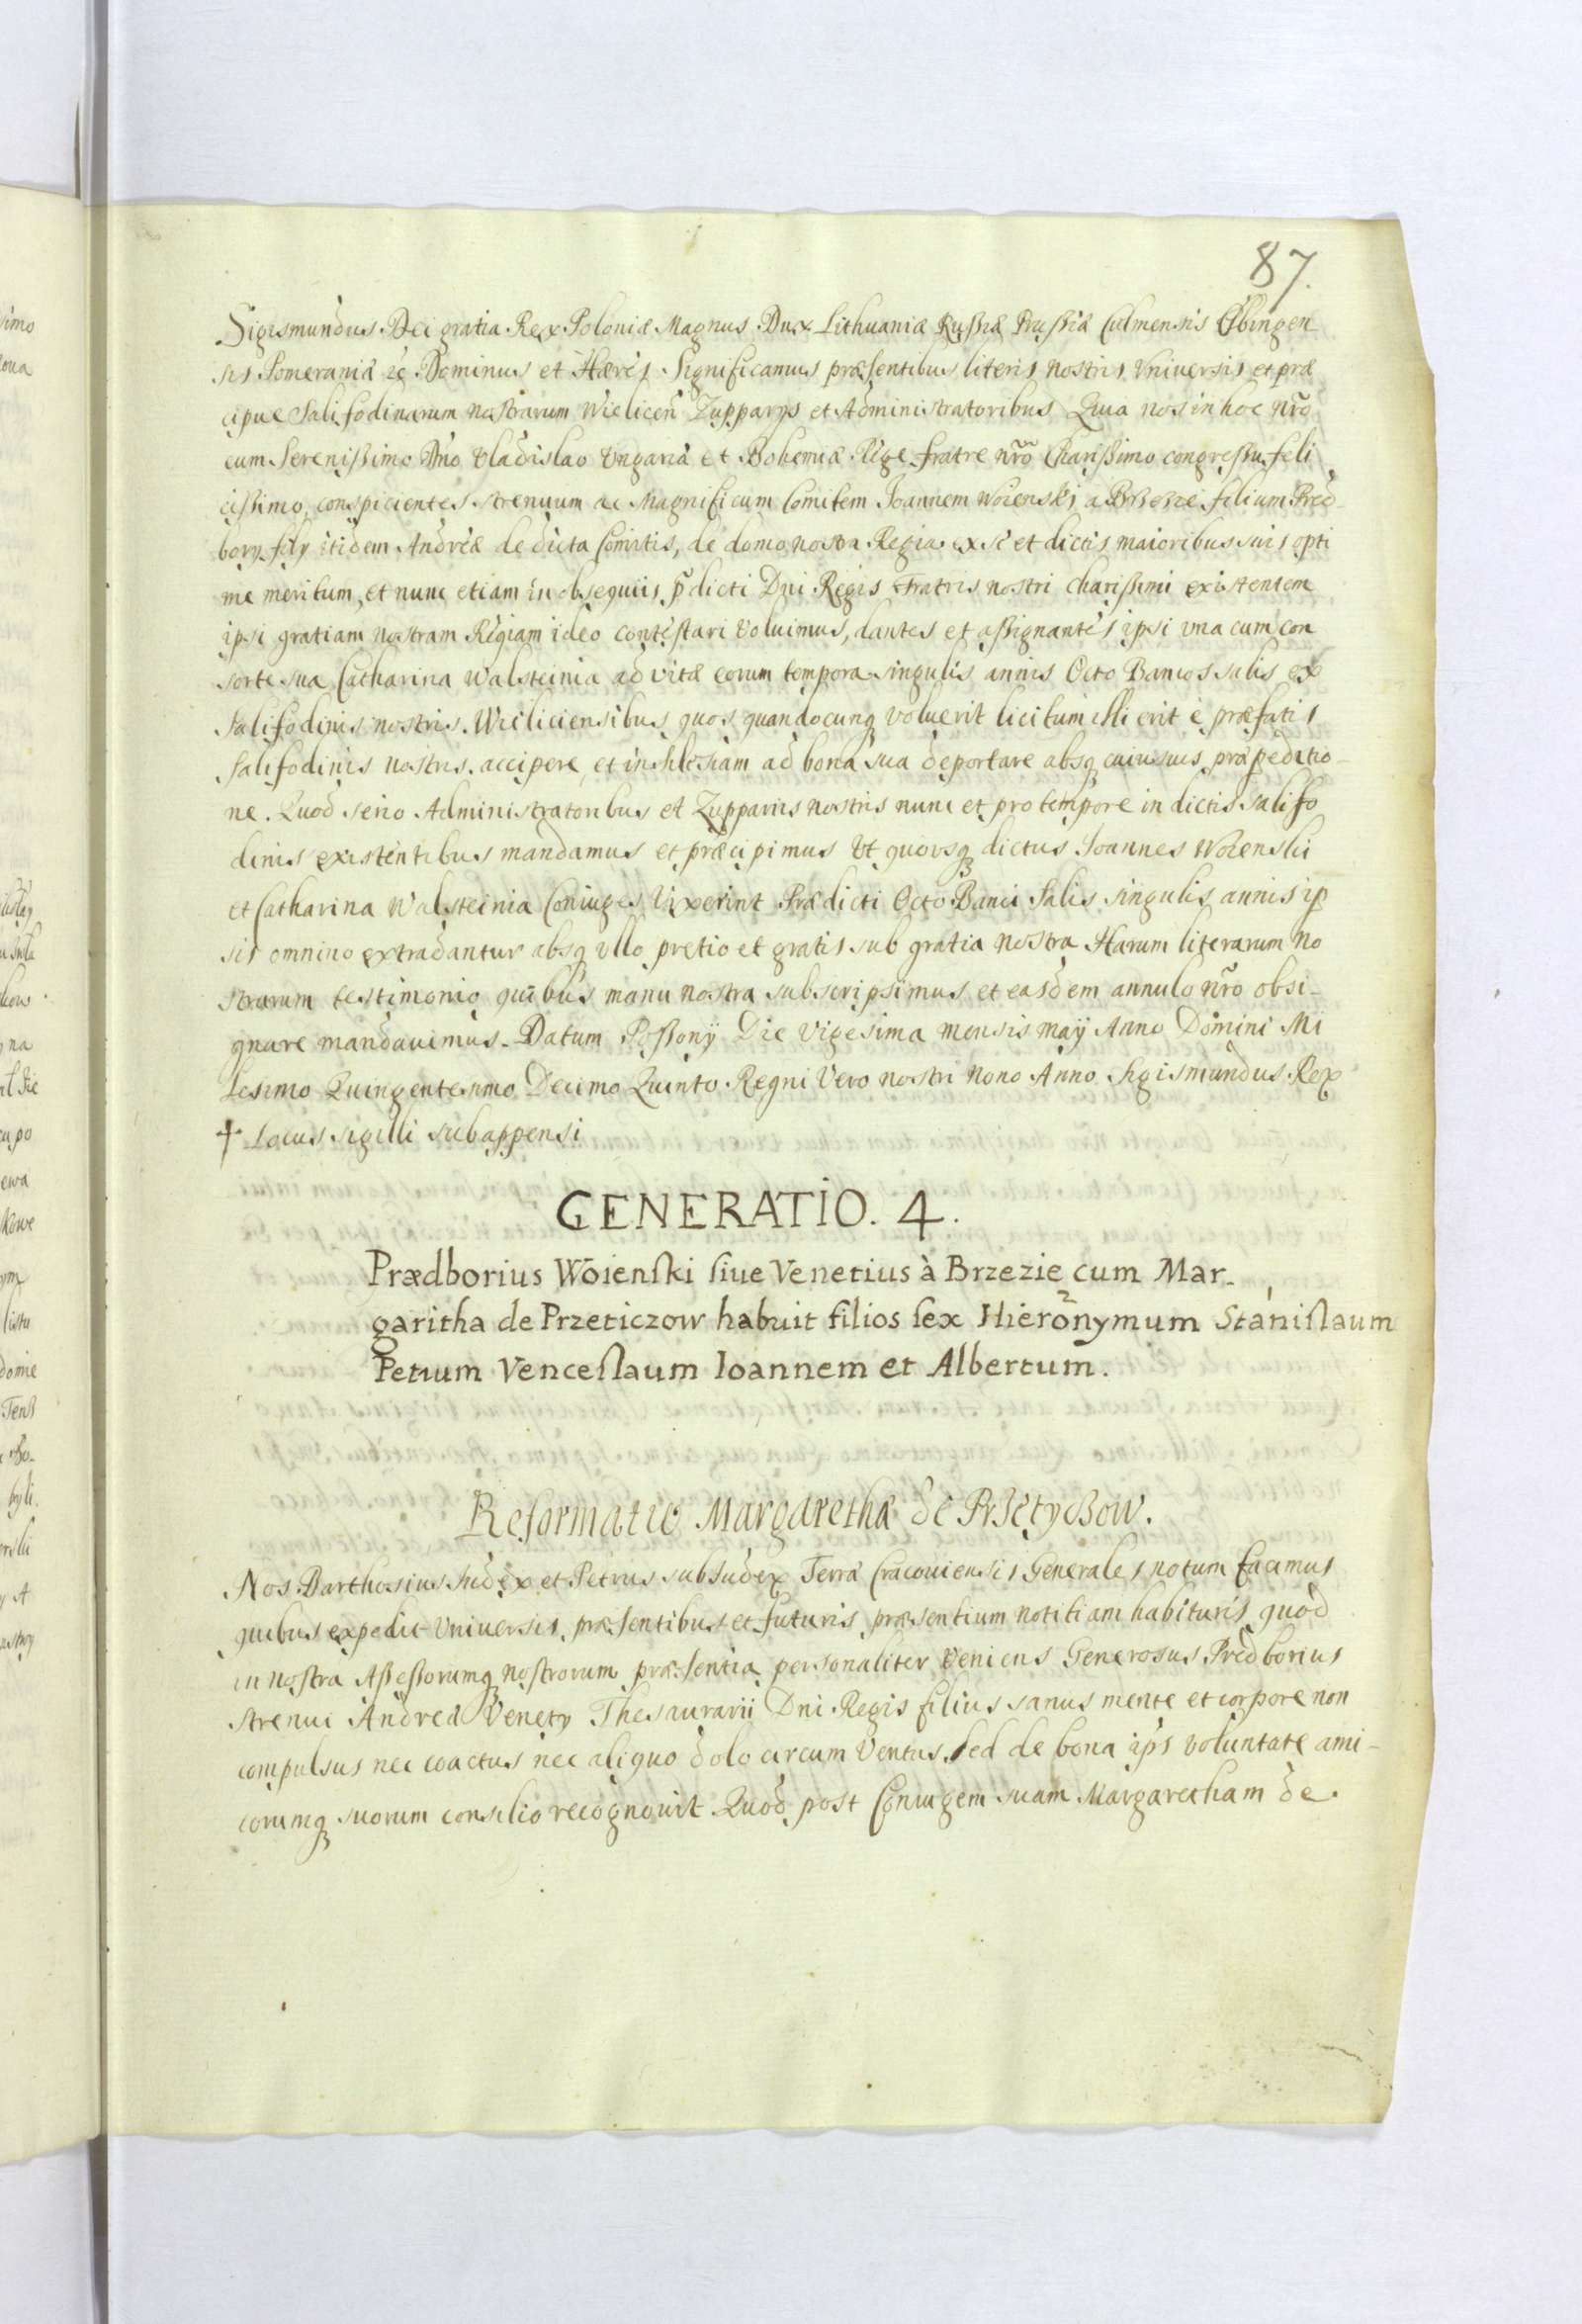 87.
Sigismundus Dei gratia Rex Poloniæ Magnus Dux Lithuaniæ Rußiæ Prußiæ Culmensis Elbingen
sis Pomeraniæ &c Dominus et Hæres Significamus præsentibus literis nostris Vniuersis et præ
cipue Salifodinarum nostrarum Wielicen̄ Zupparys et Administratoribus Quia nos in hoc nr̃o
cum Serenißimo Dn̄o Vladislao Vngariæ et Bohemiæ Rege fratre nr̃o Charißimo congreßu feli
cißimo conspicientes strenuum ac Magnificum Comitem Joannem Woienski a Brzezie filium Pred
bory fily itidem Andreæ de dicta Comitis, de domo nostra Regia ex se et dictis maioribus suis opti
me meritum, et nunc etiam in obsequiis p̄dicti Dni Regis Fratris nostri charißimi existentem
ipsi gratiam nostram Regiam ideo contestari Voluimus, dantes et aßignantes ipsi vna cum con
sorte sua Catharina Walsteinia ad vitæ eorum tempora singulis annis Octo Bancos salis ex
Salifodinis nostris Wieliciensibus quos quandocunq voluerit licitum illi erit è præfatis
Salifodinis nostris accipere et in Silesiam ad bona sua deportare absq cuiusuis præpeditio-
ne. Quod serio Administratoribus et Zuppariis nostris nunc et pro tempore in dictis salifo
dinis existentibus mandamus et præcipimus Vt quousq dictus Joannes Woienski
et Catharina Walsteinia Coniuges Vixerint Prædicti Octo Banci Salis singulis annis ip
sis omnino extradantur absq vllo pretio et gratis sub gratia nostra Harum literarum no
strarum testimonio quibus manu nostra subscripsimus et easdem annulo nr̃o obsi-
gnare mandauimus. Datum Poßonÿ Die Vigesima mensis maÿ Anno Domini Mi
lesimo Quingentesimo Decimo Quinto Regni Vero nostri Nono Anno Sigismundus Rex
† Locus sigilli subappensi
GENERATIO. 4.
Prædborius Woienski siue Venetius à Brzezie cum Mar-
garitha de Przeticzow habuit filios sex Hieronymum 2 Stanislaum 1
Petrum Venceslaum Ioannem et Albertum.
Reformatio Margarethæ de Przetyczow.
Nos Barthosius Iudex et Petrus subIudex Terræ Cracouiensis Generales notum facimus
quibus expedit Vniuersis præsentibus et futuris præsentium notitiam habituris quod
in nostra Aßeßorumq nostrorum præsentia personaliter Veniens Generosus Predborius
strenui Andreæ Venety Thesaurarii Dni Regis filius sanus mente et corpore non
compulsus nec coactus nec aliquo dolo circum Ventus, sed de bona ip̄s voluntate ami-
corumq suorum consilio recognouit Quod post Coniugem suam Margaretham de